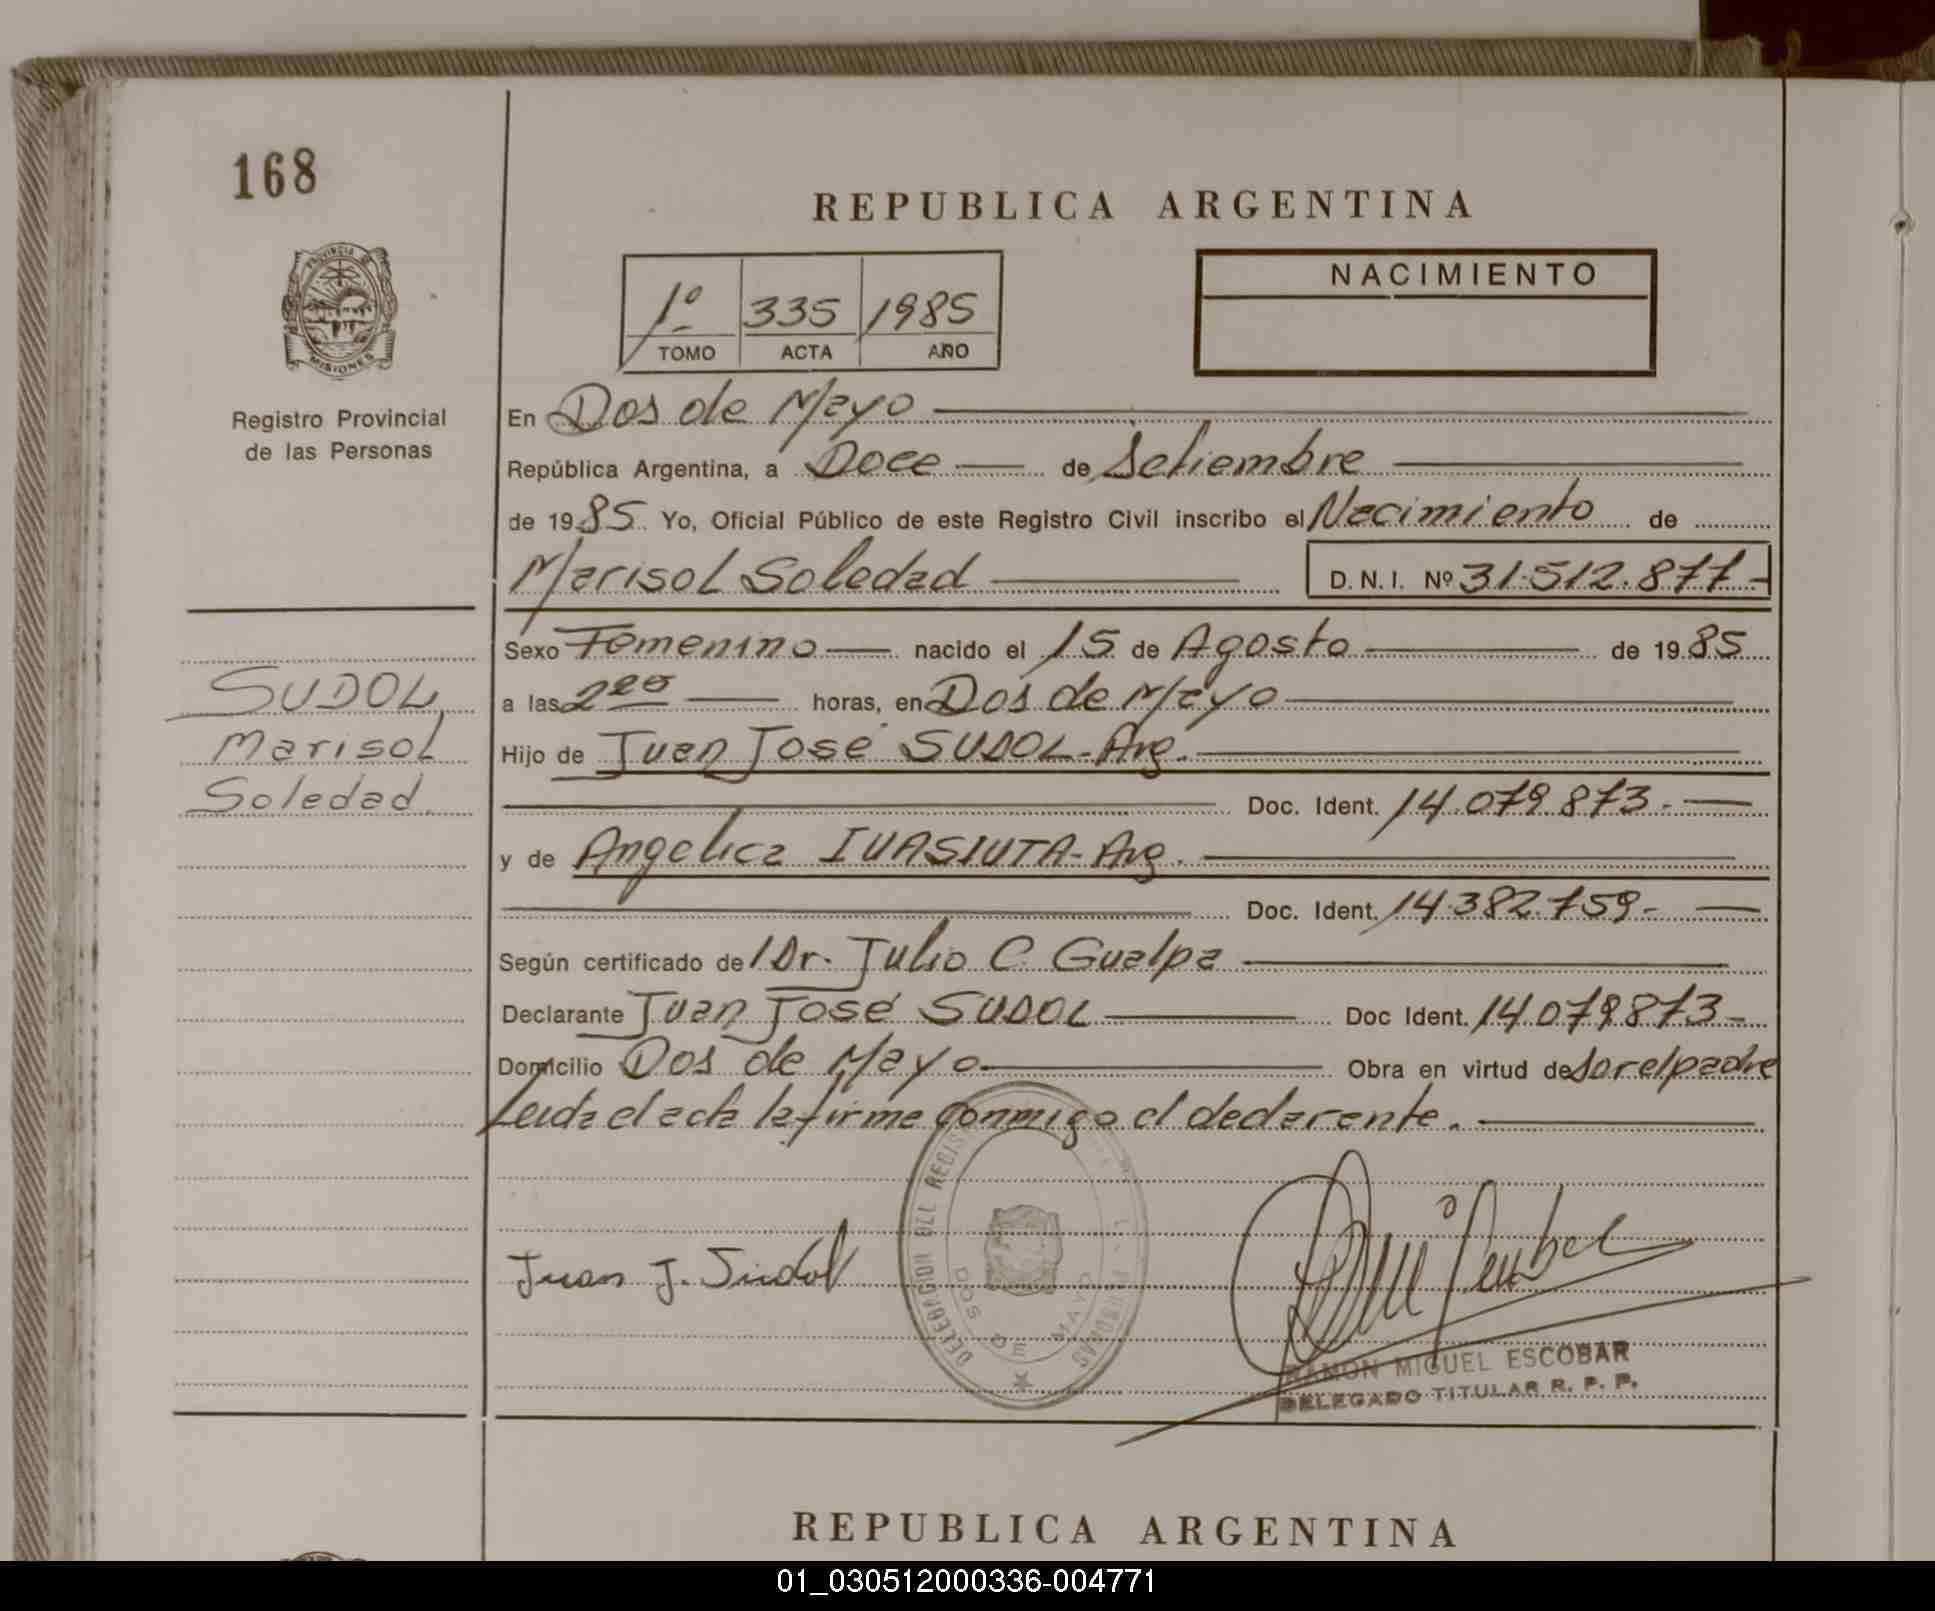 168
REPUBLICA ARGENTINA
PROVINCIA DE
MISIONES
Registro Provincial
de las Personas
1º 335 1985
TOMO ACTA AÑO
NACIMIENTO
En Dos de Mayo
República Argentina, a Doce de Setiembre
de 1985 Yo, Oficial Público de este Registro Civil inscribo el Nacimiento de
Marisol Soledad D.N.I. Nº 31.512.877-
Sexo Femenino nacido el 15 de Agosto de 1985
a las 2 horas, en Dos de Mayo
SUDOL,
Marisol
Soledad.
Hijo de Juan José SUDOL-Arg.
Doc. Ident. 14.079.873.-
y de Angelica IUASIUTA-Arg.
Doc. Ident. 14.382.759-
Según certificado de Dr. Julio C. Gualpa
Declarante Juan José SUDOL Doc Ident. 14.079.873-
Domicilio Dos de Mayo Obra en virtud de ser el padre
Leida el acta la firma conmigo el declarante.
DELEGACION DEL
DOS DE MAYO
Juan J. Sudol
RAMON MIGUEL ESCOBAR
DELEGADO TITULAR R. P. P.
REPUBLICA ARGENTINA
01_030512000336-004771